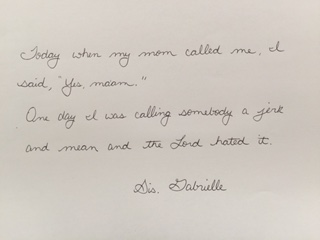 Today when my mom called me, I
said, "Yes, maam."
One day I was calling somebody a jerk
and mean and the Lord hated it.
Sis. Gabrielle